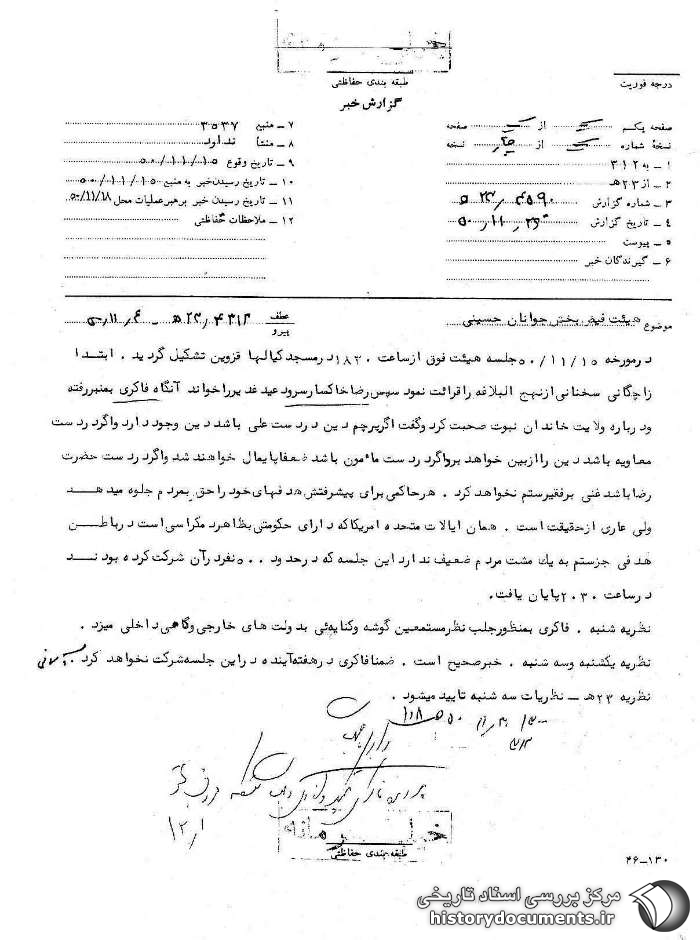 طبقه بندی حفاظتی
گزارش خبر
درجه فوریت
صفحه یکم از صفحه
نسخهٔ شماره از چهار نسخه
۱ ـ به ۳۱۲
۲ ـ از ۲۳هـ
۳ ـ شماره گزارش
۴ ـ تاریخ گزارش
۵ ـ پیوست
۶ ـ گیرندگان خبر
۷ ـ منبع ۳۵۳۷
۸ ـ منشأ ندارد
۹ ـ تاریخ وقوع ۵۰/۱۱/۱۵
۱۰ ـ تاریخ رسیدن خبر به منبع ۵۰/۱۱/۱۵
۱۱ ـ تاریخ رسیدن خبر برهبرعملیات محل ۵۰/۱۱/۱۸
۱۲ ـ ملاحظات حفاظتی
موضوع هیئت فیض بخش جوانان حسینی
عطف
پیرو
درمورخه ۵۰/۱۱/۱۵ جلسه هیئت فوق ازساعت ۱۸۳۰ درمسجد کیالها قزوین تشکیل گردید . ابتدا
زاچگانی سخنانی ازنهج البلاغه راقرائت نمود سپس رضاخاکسارسرود عید غدیرراخواند آنگاه فاکری بمنبررفته
ود رباره ولایت خاندان نبوت صحبت کرد وگفت اگرپرچم دین در دست علی باشد دین وجود دارد واگردر دست
معاویه باشد دین راازبین خواهد برد واگردر دست مأمون باشد ضعفاپایمال خواهند شد واگردر دست حضرت
رضاباشد غنی برفقیرستم نخواهد کرد . هرحاکمی برای پیشرفتش هدفهای خود راحق بمردم جلوه مید هد
ولی عاری ازحقیقت است . همان ایالات متحده امریکاکه دارای حکومتی بظاهردمکراسی است درباطن
هدفی جزستم به یک مشت مردم ضعیف ندارد این جلسه که درحدود ۵۰۰ نفردرآن شرکت کرده بودند
درساعت ۲۰۳۰ پایان یافت.
نظریه شنبه . فاکری بمنظورجلب نظرمستمعین گوشه وکنایه‌ئی بدولت های خارجی وگاهی داخلی میزد .
نظریه یکشنبه وسه شنبه . خبرصحیح است . ضمنافاکری درهفته‌آینده دراین جلسه‌شرکت نخواهد کرد .
نظریه ۲۳هـ ـ نظریات سه شنبه تایید میشود .
خیلی محرمانه
طبقه بندی حفاظتی
۴۶ـ۱۳۰
مرکز بررسی اسناد تاریخی
historydocuments.ir